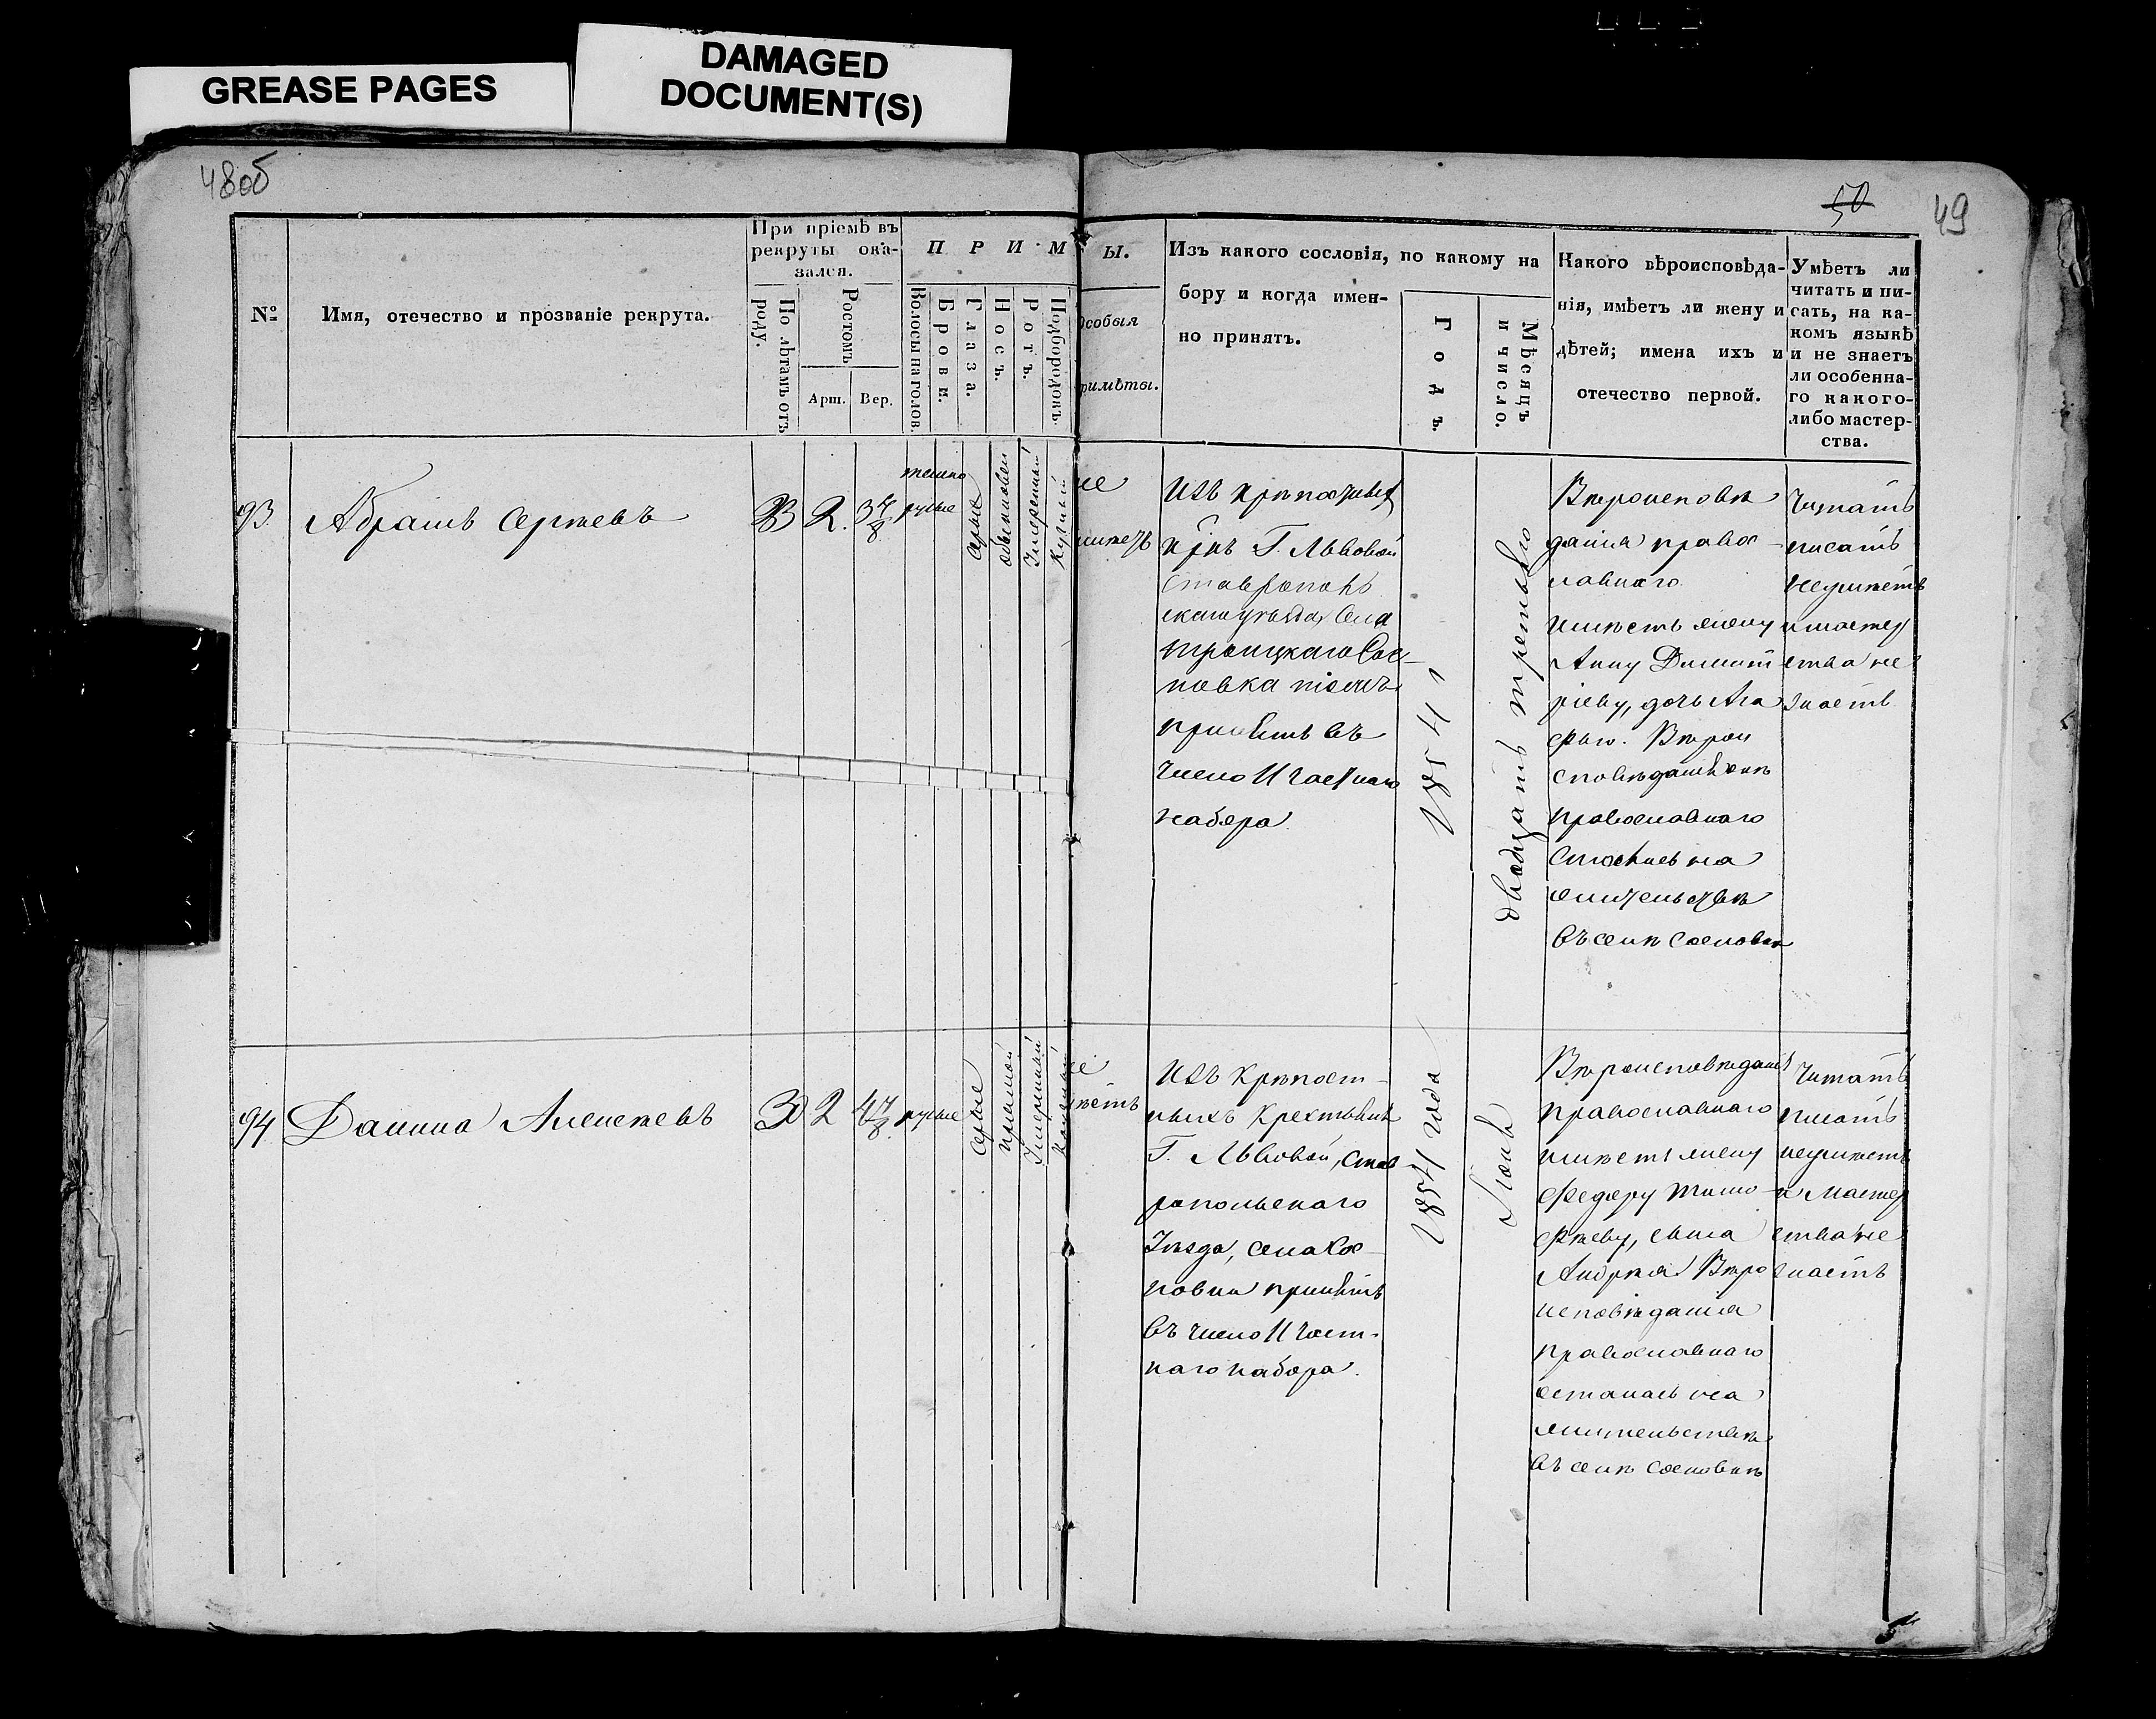 GREASE PAGES
DAMAGED
DOCUMENT(S)
48об
50
49
№
Имя, отечество и прозваніе рекрута.
При пріемѣ въ
рекруты ока-
зался.
По лѣтамъ отъ
роду.
Ростомъ
Арш.
Вер.
П Р И М
Волосы на голов.
Брови.
Глаза.
Носъ.
Ротъ.
Подбородокъ
Ы.
Особыя
римѣты.
Изъ какого сословія, по какому на
бору и когда имен-
но принятъ.
Годъ.
Мѣсяцъ
и число.
Какого вѣроисповѣда-
нія, имѣетъ ли жену и
дѣтей; имена ихъ и
отечество первой.
Умѣетъ ли
читать и пи-
сать, на ка-
комъ языкѣ
и не знаетъ
ли особенна-
го какого-
либо мастер-
ства.
93.
Абрамъ Сергѣевъ
23
2.
3 4/8
темно
русые
серые
обыкновен
Умеренный
Круглый
не
Изъ крѣпостных
кр͞нъ Г. Львовой
Ставрополь
скаго уѣзда, Села
Троицкаго Сос-
новка тожъ
принятъ въ
число 11 частнаго
набора
1854
двадцать третьяго
Вѣроисповѣ
данія право-
лавнаго
имѣетъ жену
Анну Димит
ріеву, дочь Ага
фью. Вѣрои
сповѣданія онѣ
православнаго
на
жительствѣ
въ селѣ Сосновкѣ
Читать
писать
неумѣетъ
и мастер
ства не
знаетъ
94
Данила Алексеевъ
30
2
4 4/8
русые
серые
прямой
Умеренный
не
Изъ Крѣпост-
ныхъ Крестьянъ
Г. Львовой, Став-
ропольскаго
Уѣзда, села Сос-
новки принятъ
въ число 11 част-
наго набора.
1854 года
Вѣроисповѣданія
православнаго
имѣетъ жену
Федору Тимо-
фѣеву, сына
Андрѣя Вѣро
исповѣданія
православнаго
осталась на
жительствѣ
въ селѣ Сосновкѣ
Читать
писать
неумѣетъ
и мастер
ства не
знаетъ